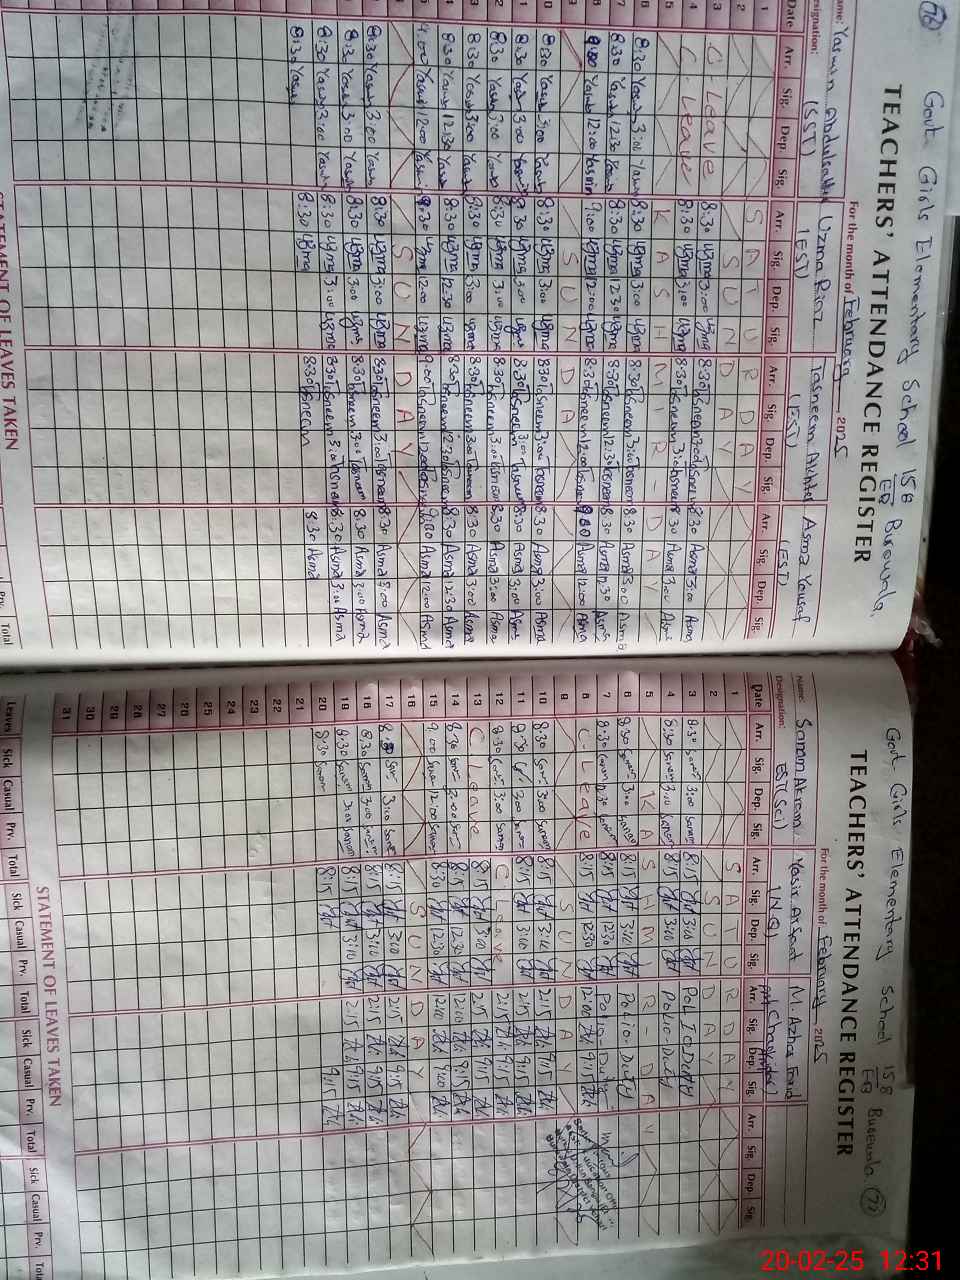 Govt. Girls Elementary School 158 EB Burewala.
TEACHERS' ATTENDANCE REGISTER
For the month of February 2025
Name: Yasmin
Uzma Riaz
Tasneem Akhter
Asma Yousaf
Designation: (SST)
(EST)
(EST)
(EST)
Date Arr. Sig. Dep. Sig. Arr. Sig. Dep. Sig. Arr. Sig. Dep. Sig. Arr. Sig. Dep. Sig.
1 SATURDAY
2 SUNDAY
3 C-Leave 8:30 Uzma 3:00 Uzma 8:30 Tasneem 3:00 Tasneem 8:30 Asma 3:00 Asma
4 C-Leave 8:30 Uzma 3:00 Uzma 8:30 Tasneem 3:00 Tasneem 8:30 Asma 3:00 Asma
5 KASHMIR-DAY
6 8:30 Yasmin 3:00 Yasmin 8:30 Uzma 3:00 Uzma 8:30 Tasneem 3:00 Tasneem 8:30 Asma 3:00 Asma
7 8:30 Yasmin 12:30 Yasmin 8:30 Uzma 12:30 Uzma 8:30 Tasneem 12:30 Tasneem 8:30 Asma 12:30 Asma
8 Yasmin 12:00 Yasmin 9:00 Uzma 12:00 Uzma Tasneem 12:00 Tasneem 9:00 Asma 12:00 Asma
9 SUNDAY
10 8:30 Yasmin 3:00 Yasmin 8:30 Uzma 3:00 Uzma 8:30 Tasneem 3:00 Tasneem 8:30 Asma 3:00 Asma
8:30 Yasmin 3:00 Yasmin 8:30 Uzma 3:00 Uzma 8:30 Tasneem 3:00 Tasneem 8:30 Asma 3:00 Asma
8:30 Yasmin 3:00 Yasmin 8:30 Uzma 3:00 Uzma 8:30 Tasneem 3:00 Tasneem 8:30 Asma 3:00 Asma
8:30 Yasmin 3:00 Yasmin 8:30 Uzma 3:00 Uzma 8:30 Tasneem 3:00 Tasneem 8:30 Asma 3:00 Asma
8:30 Yasmin 12:30 Yasmin 8:30 Uzma 12:30 Uzma 8:30 Tasneem 12:30 Tasneem 8:30 Asma 12:30 Asma
9:00 Yasmin 12:00 Yasmin Uzma 12:00 Uzma 9:00 Tasneem 12:00 Tasneem 9:00 Asma 12:00 Asma
SUNDAY
8:30 Yasmin 3:00 Yasmin 8:30 Uzma 3:00 Uzma 8:30 Tasneem 3:00 Tasneem 8:30 Asma 3:00 Asma
8:30 Yasmin 3:00 Yasmin 8:30 Uzma 3:00 Uzma 8:30 Tasneem 3:00 Tasneem 8:30 Asma 3:00 Asma
8:30 Yasmin 3:00 Yasmin 8:30 Uzma 3:00 Uzma 8:30 Tasneem 3:00 Tasneem 8:30 Asma 3:00 Asma
8:30 Yasmin 8:30 Uzma 8:30 Tasneem 8:30 Asma
STATEMENT OF LEAVES TAKEN
Prv. Total
Govt. Girls Elementary School 158 EB Burewala. 77
TEACHERS' ATTENDANCE REGISTER
For the month of February 2025
Name: Sanam Akram
Yasir Arfaat
M. Azhar Farid
Designation: EST(Sci)
(N.Q)
Chowkidar
Date Arr. Sig. Dep. Sig. Arr. Sig. Dep. Sig. Arr. Sig. Dep. Sig. Arr. Sig. Dep. Sig.
1 SATURDAY
2 SUNDAY
3 8:30 Sanam 3:00 Sanam 8:15 3:10 Polio Duty
4 8:30 Sanam 3:00 Sanam 8:15 3:10 Polio-Duty
5 KASHMIR-DAY
6 8:30 Sanam 3:00 Sanam 8:15 3:10 Polio-Duty
7 8:30 Sanam 12:30 Sanam 8:15 12:30 Polio-Duty
8 C-Leave 8:15 12:30 12:00 9:15
9 SUNDAY
10 8:30 Sanam 3:00 Sanam 8:15 3:10 2:15 9:15
11 8:30 3:00 Sanam 8:15 3:10 2:15 9:15
12 8:30 3:00 Sanam C-Leave 2:15 9:15
13 C-Leave 8:15 3:10 2:15 9:15
14 8:30 Sanam Sanam 8:15 12:30 12:00 9:15
15 9:00 Sanam 12:00 Sanam 8:30 12:30 12:00 9:00
16 SUNDAY
17 8:30 Sanam 3:00 Sanam 8:15 3:10 2:15 9:15
18 8:30 Sanam 3:00 Sanam 8:15 3:10 2:15 9:15
19 8:30 Sanam 3:00 Sanam 8:15 3:10 2:15 9:15
20 8:30 Sanam 8:15 9:15
21
22
23
24
25
26
27
28
29
30
31
STATEMENT OF LEAVES TAKEN
Leaves Sick Casual Prv. Total Sick Casual Prv. Total Sick Casual Prv. Total Sick Casual Prv. Total
20-02-25 12:31